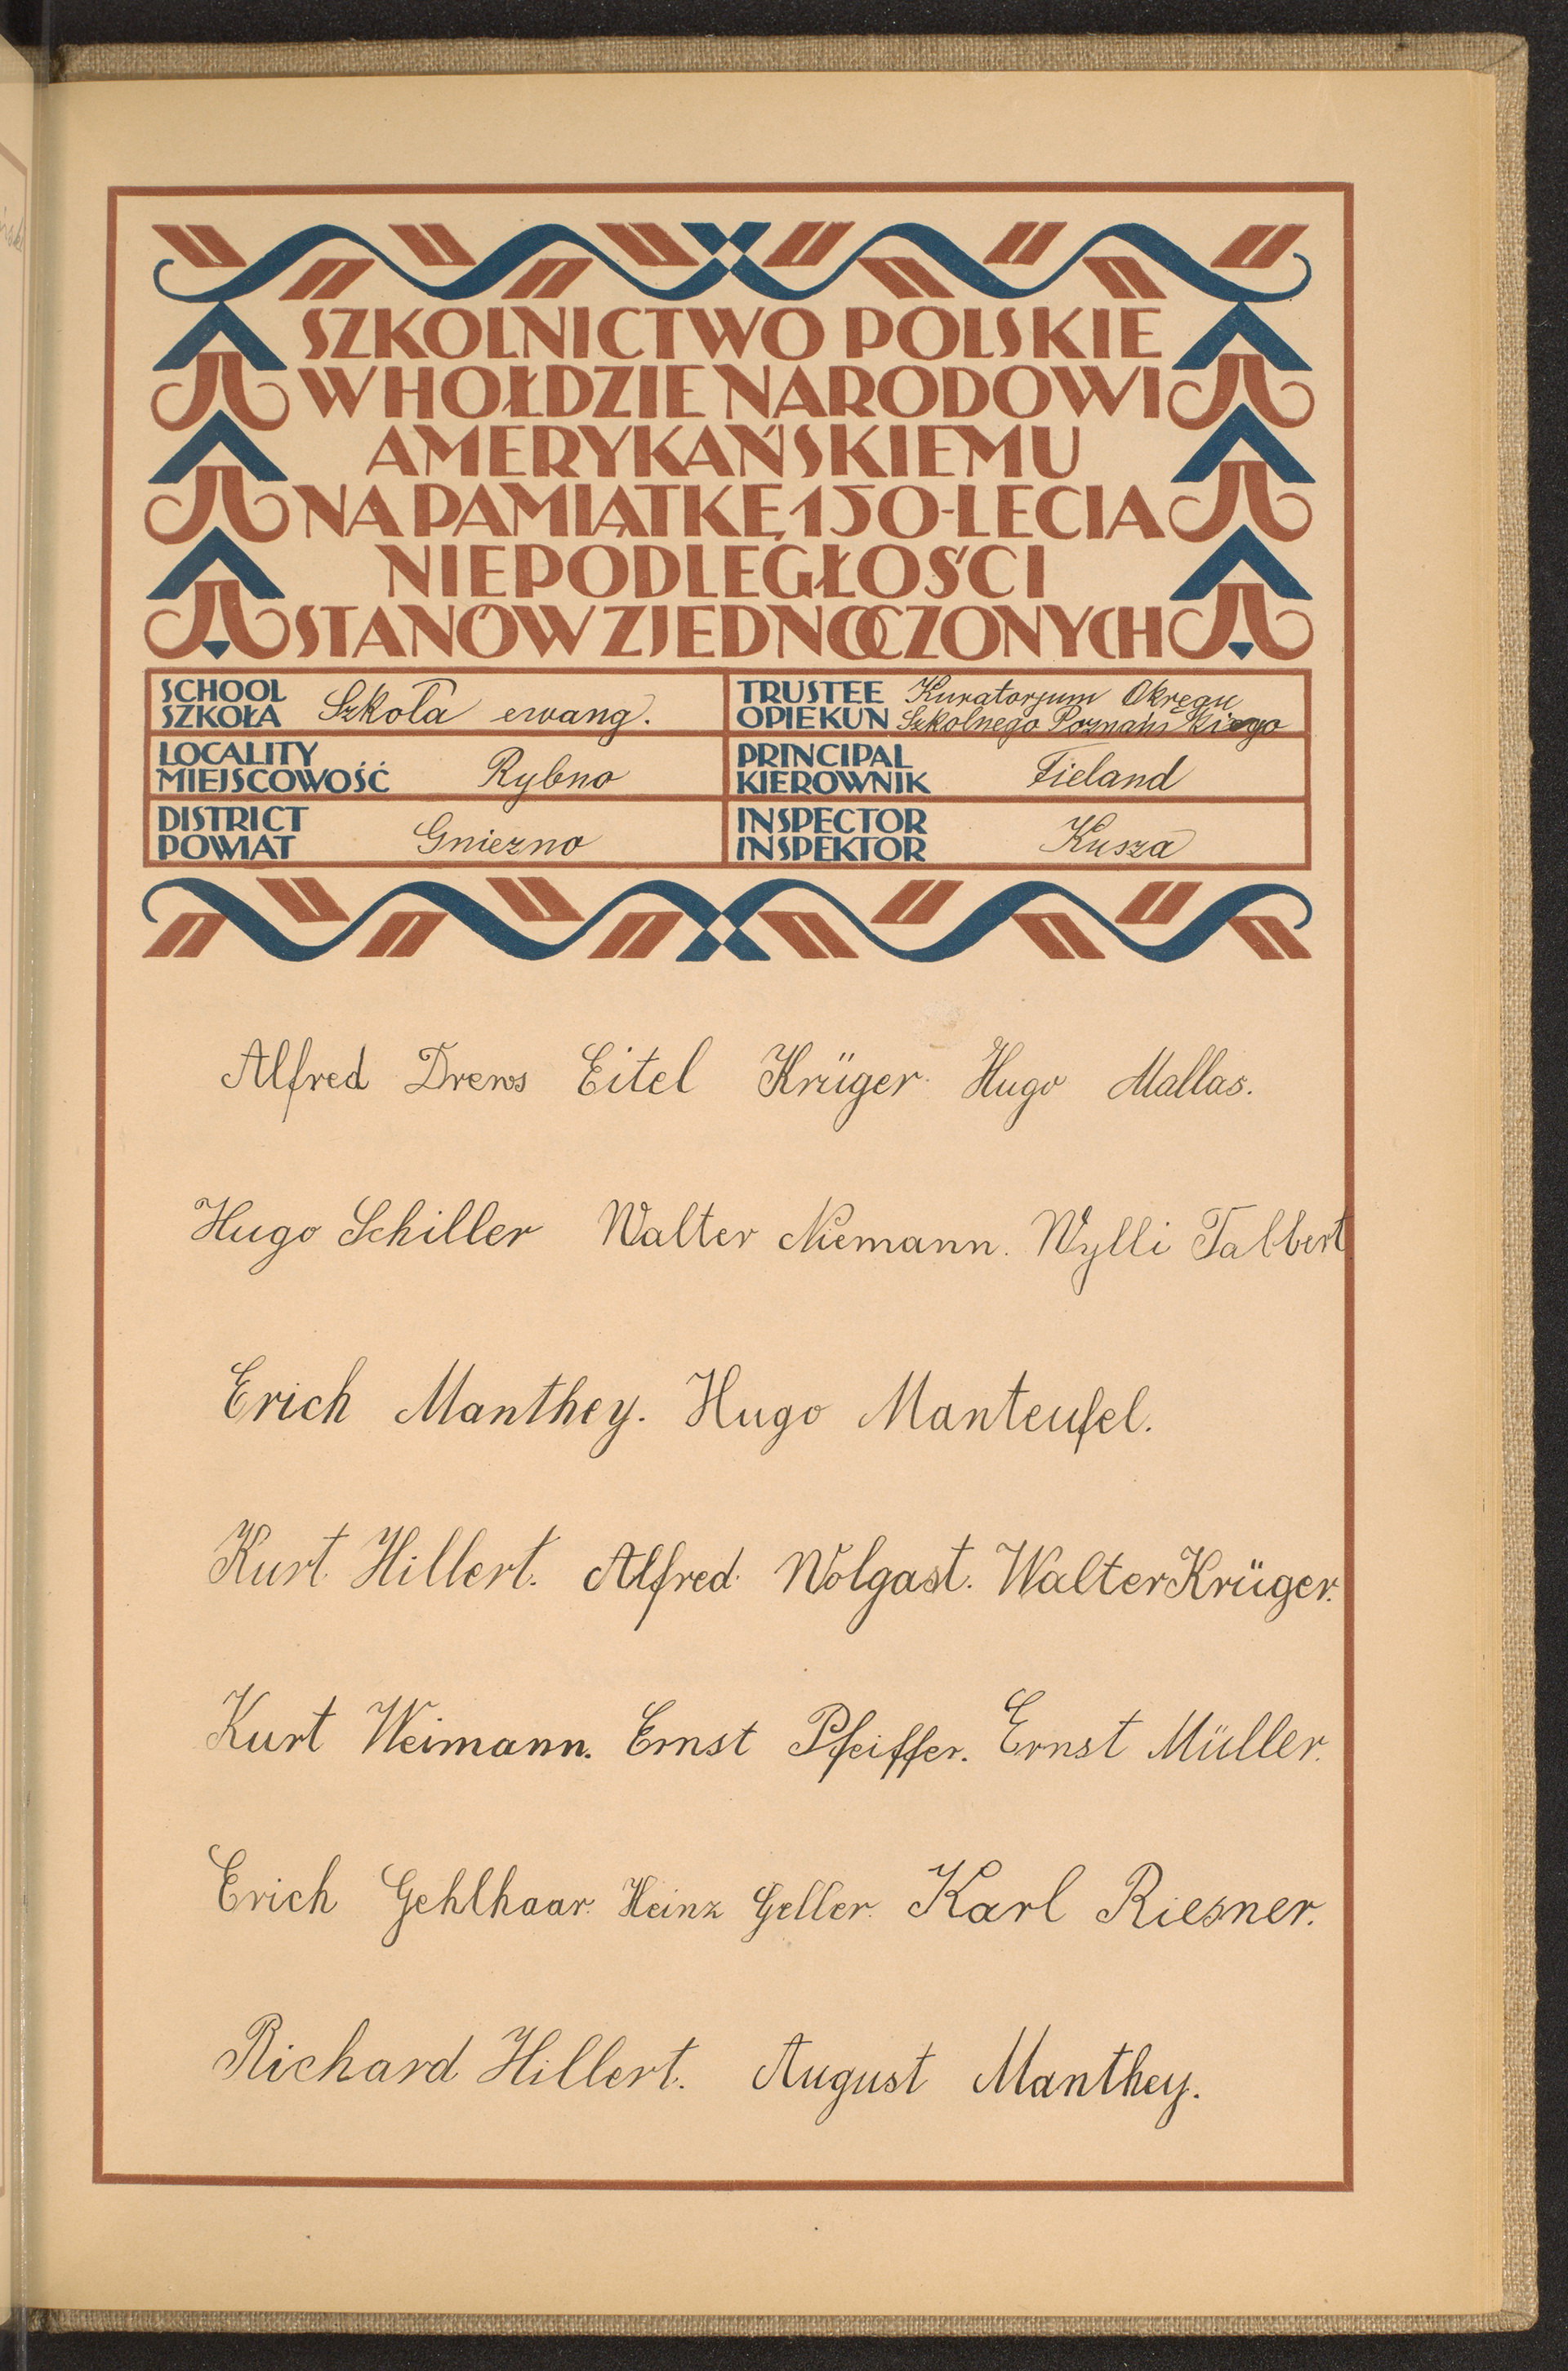 SZKOLNICTWO POLSKIE
W HOŁDZIE NARODOWI
AMERYKAŃSKIEMU
NA PAMIĄTKĘ 150-LECIA
NIEPODLEGŁOŚCI
STANÓW ZJEDNOCZONYCH
SCHOOL
SZKOŁA Szkoła ewang.
TRUSTEE Kuratorjum Okręgu
OPIEKUN Szkolnego Poznańskiego
LOCALITY
MIEJSCOWOŚĆ Rybno
PRINCIPAL
KIEROWNIK Fieland
DISTRICT
POWIAT Gniezno
INSPECTOR
INSPEKTOR Kusza
Alfred Drews Eitel Krüger. Hugo Mallas.
Hugo Schiller Walter Niemann. Wylli Talbert
Erich Manthey. Hugo Manteufel.
Kurt Hillert. Alfred Wolgast. Walter Krüger.
Kurt Weimann. Ernst Pfeiffer. Ernst Müller.
Erich Gehlhaar. Heinz Geller. Karl Riesner.
Richard Hillert. August Manthey.